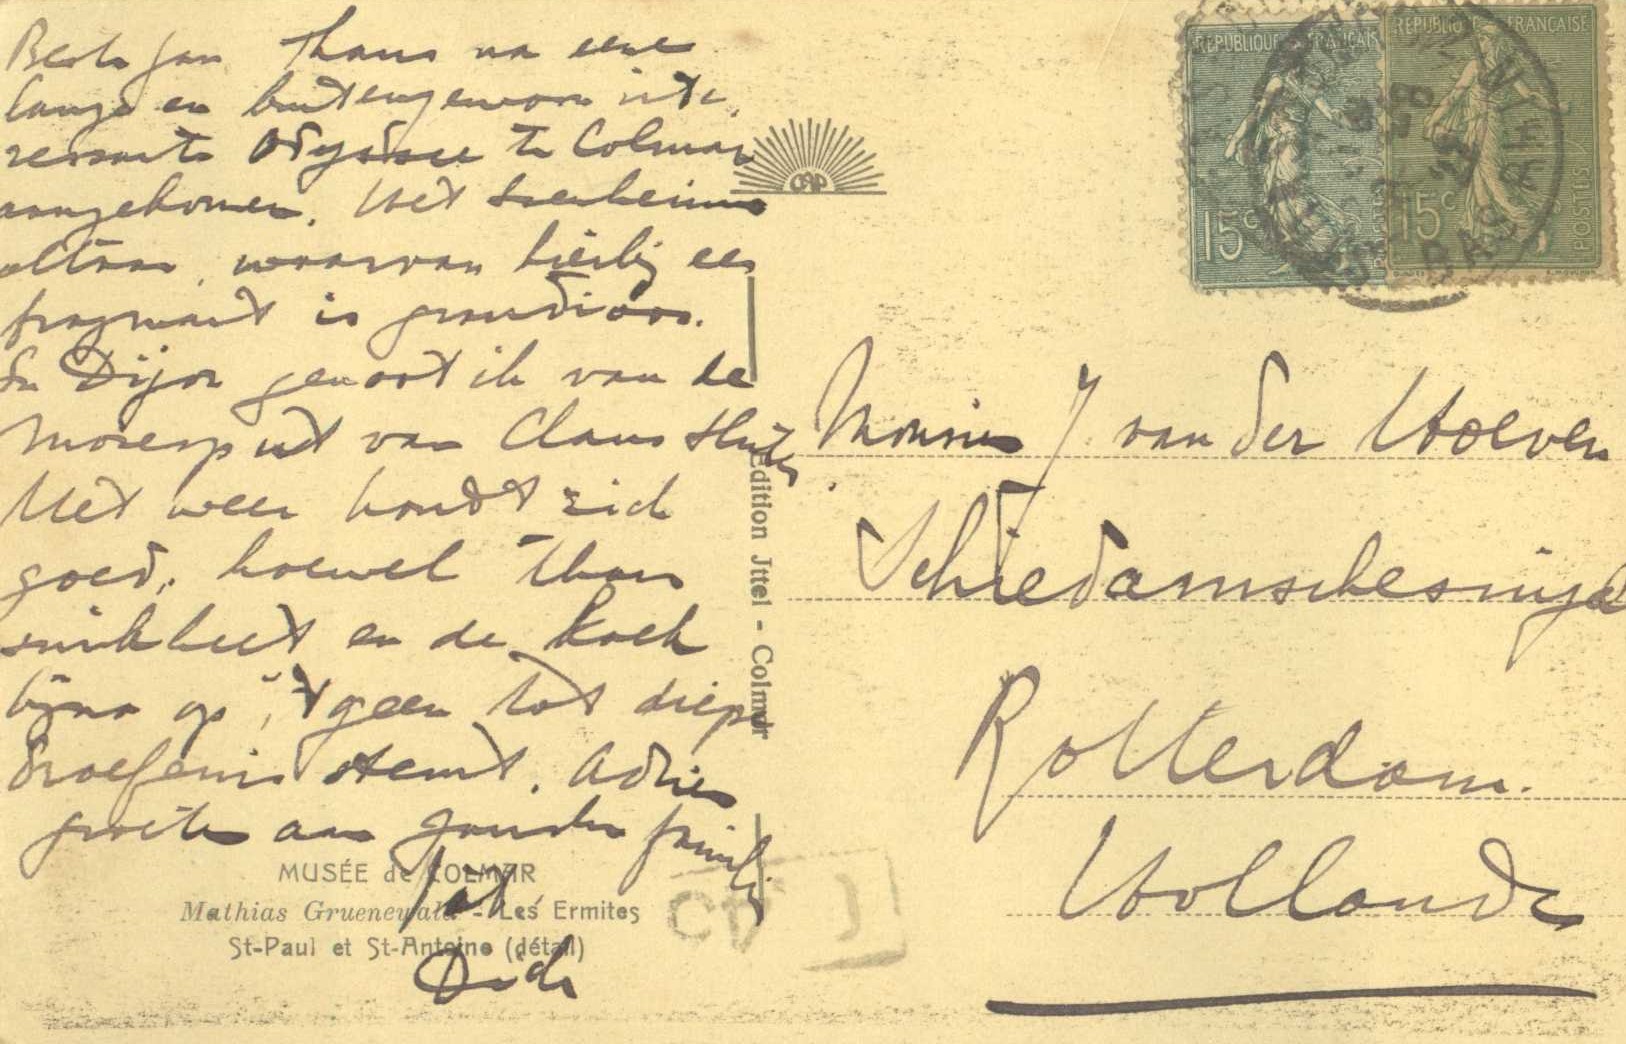 Beste Jan Thans na eene
lange en buitengewoon inte
ressante Odyssee te Colmar
aangekomen. Het Isenheimer
altaar, waarvan hierbij een
fragment is grandioos.
In Dijon genoot ik van de
Mozesput van Claus Sluter
Het weer houdt zich
goed, hoewel thans
en de koek
bijna op, 't geen tot diepe
droefenis stemt. Adres
groeten aan familie
Dick
MUSÉE de COLMAR
Mathias Gruenewald - Les Ermites
St-Paul et St-Antoine (détail)
Edition Jttel - Colmar
CAP
REPUBLIQUE FRANÇAISE
15c
REPUBLIQUE FRANÇAISE
15c
POSTES
BAS RHIN
Monsieur J. van der Hoeven
Schiedamschesingel
Rotterdam.
Hollande